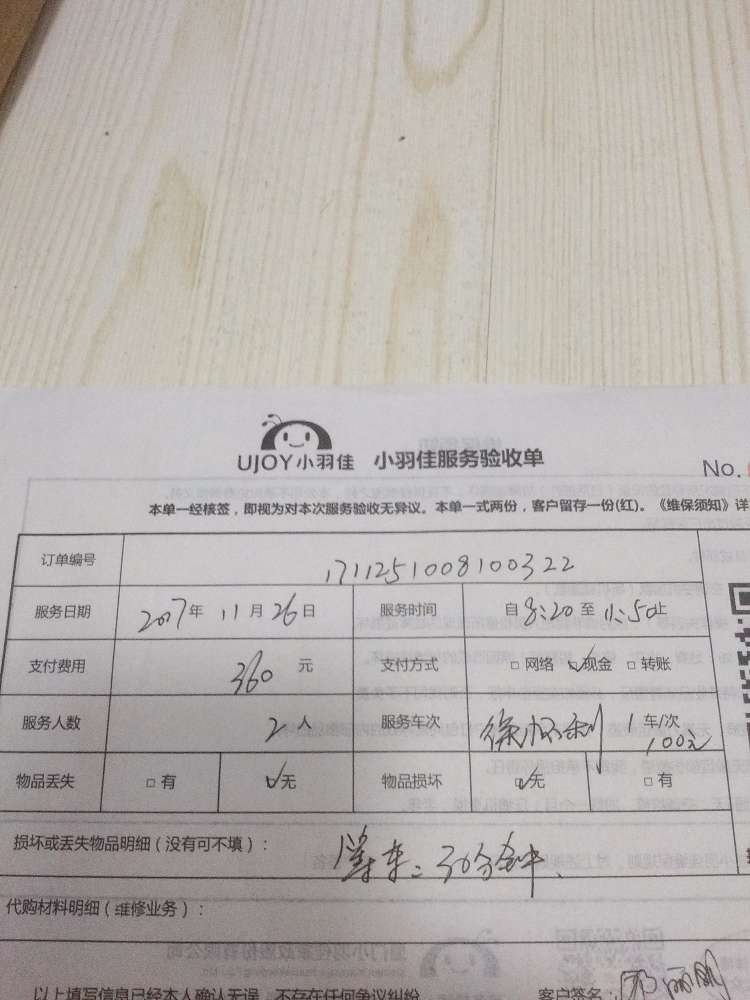 UJOY小羽佳 小羽佳服务验收单
No.
本单一经核签，即视为对本次服务验收无异议。本单一式两份，客户留存一份(红)。《维保须知》详
订单编号 1711251008100322
服务日期 2017年 11月 26日 服务时间 自 8:20 至 11:50止
支付费用 360 元 支付方式 □ 网络 ☑现金 □ 转账
服务人数 2 人 服务车次 1 车/次 100元
物品丢失 □ 有 ☑无 物品损坏 ☑无 □ 有
损坏或丢失物品明细（没有可不填）： 30分钟、
代购材料明细（维修业务）：
以上填写信息已经本人确认无误，不存在任何争议纠纷 客户签名：